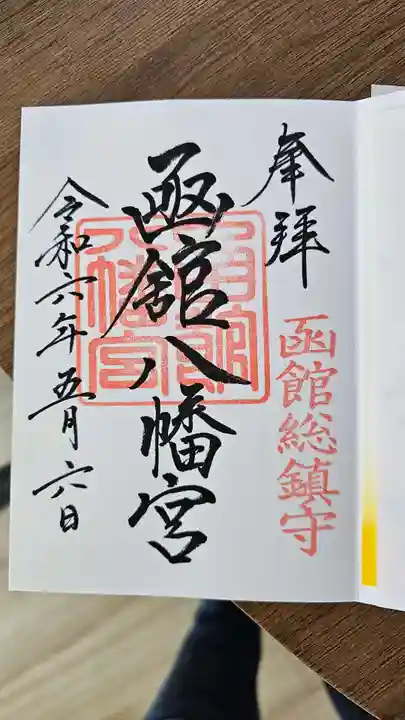 奉拝
函館総鎮守
函館八幡宮
函館八幡宮
令和六年五月六日